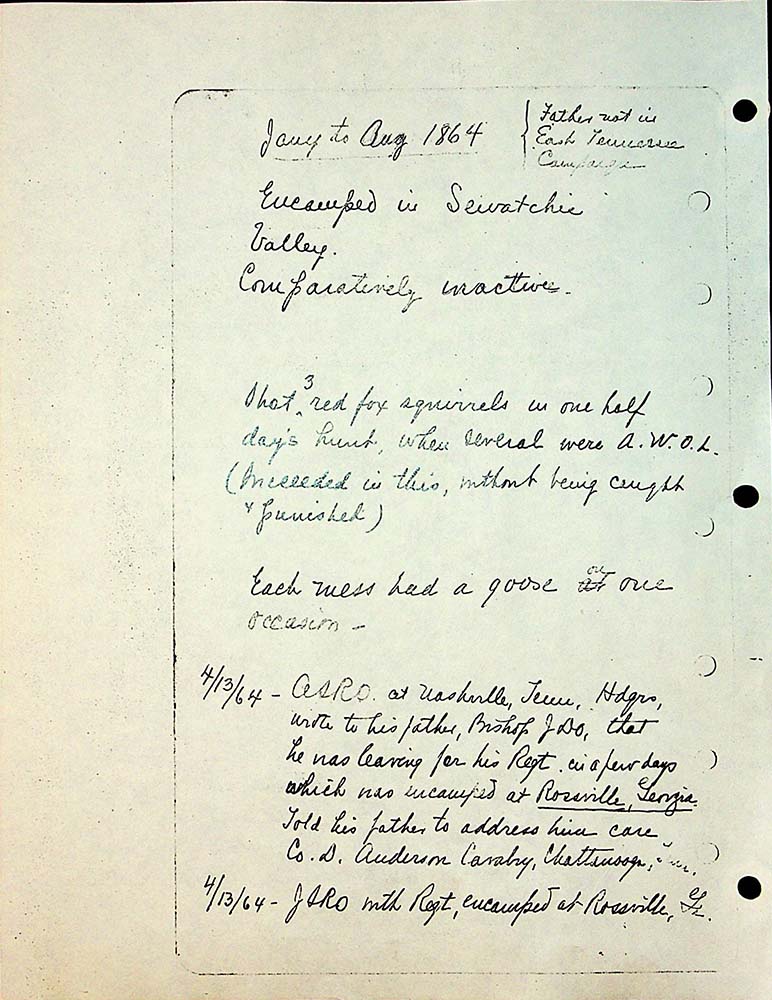 Jany to Aug 1864
{ Father not in
East Tennessee
Campaign
Encamped in Sewatchie
Valley.
Comparatively inactive.
Shot 3 red fox squirrels in one half
day's hunt, when several were A.W.O.L.
(Succeeded in this, without being caught
& punished)
Each mess had a goose on one
occasion -
4/13/64 - at Nashville, Tenn, Hdqrs,
wrote to his father, Bishop that
he was leaving for his Regt. in a few days
which was encamped at Rossville, Georgia.
Told his father to address him care
Co. D. Anderson Cavalry, Chattanooga, Tenn.
4/13/64 - with Regt, encamped at Rossville, Ga.